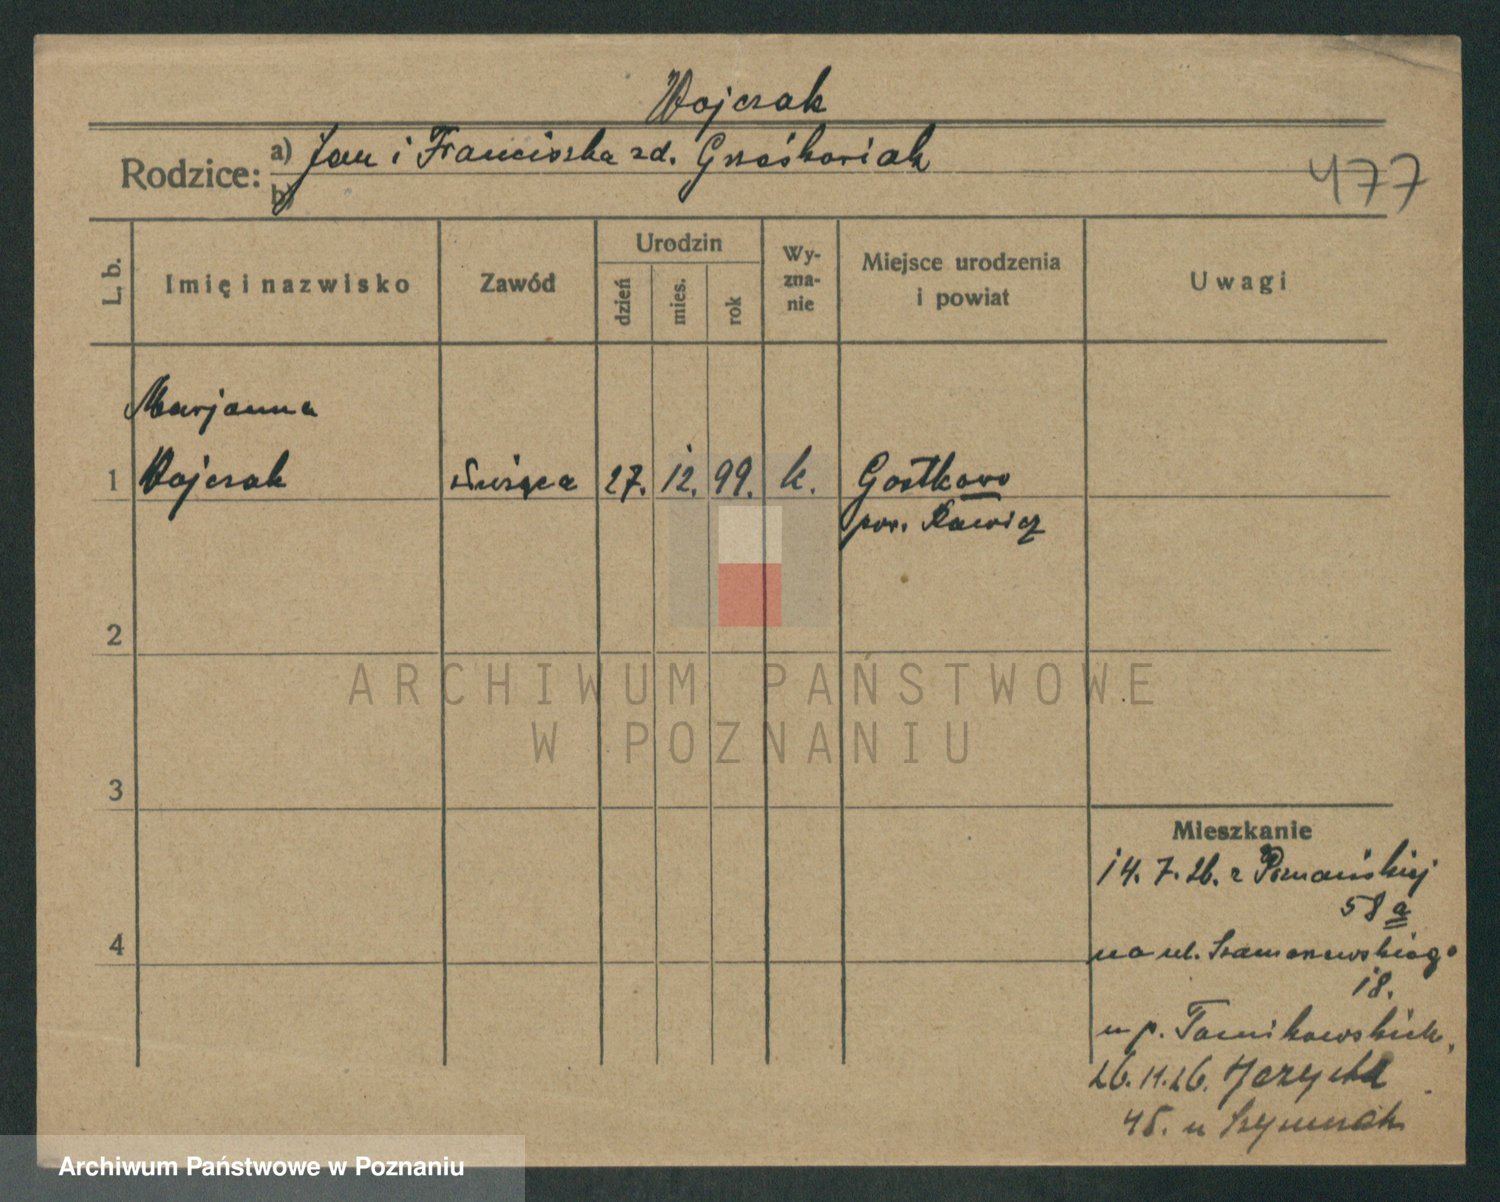 Wojczak
Rodzice: a) Jan i Franciszka zd. Grześkowiak
b)
477
L. b.
Imię i nazwisko
Zawód
Urodzin
dzień
mies.
rok
Wy-
zna-
nie
Miejsce urodzenia
i powiat
Uwagi
Marjanna
1 Wojczak służąca 27. 12. 99. k. Gostkowo
pow. Rawicz
2
3
4
ARCHIWUM PAŃSTWOWE
W POZNANIU
Mieszkanie
14. 7. 26. z Poznańskiej
58 a
na ul. Szamarzewskiego
18.
u p. Tomikowskich,
26. 11. 26.
45. u Szymczak
Archiwum Państwowe w Poznaniu